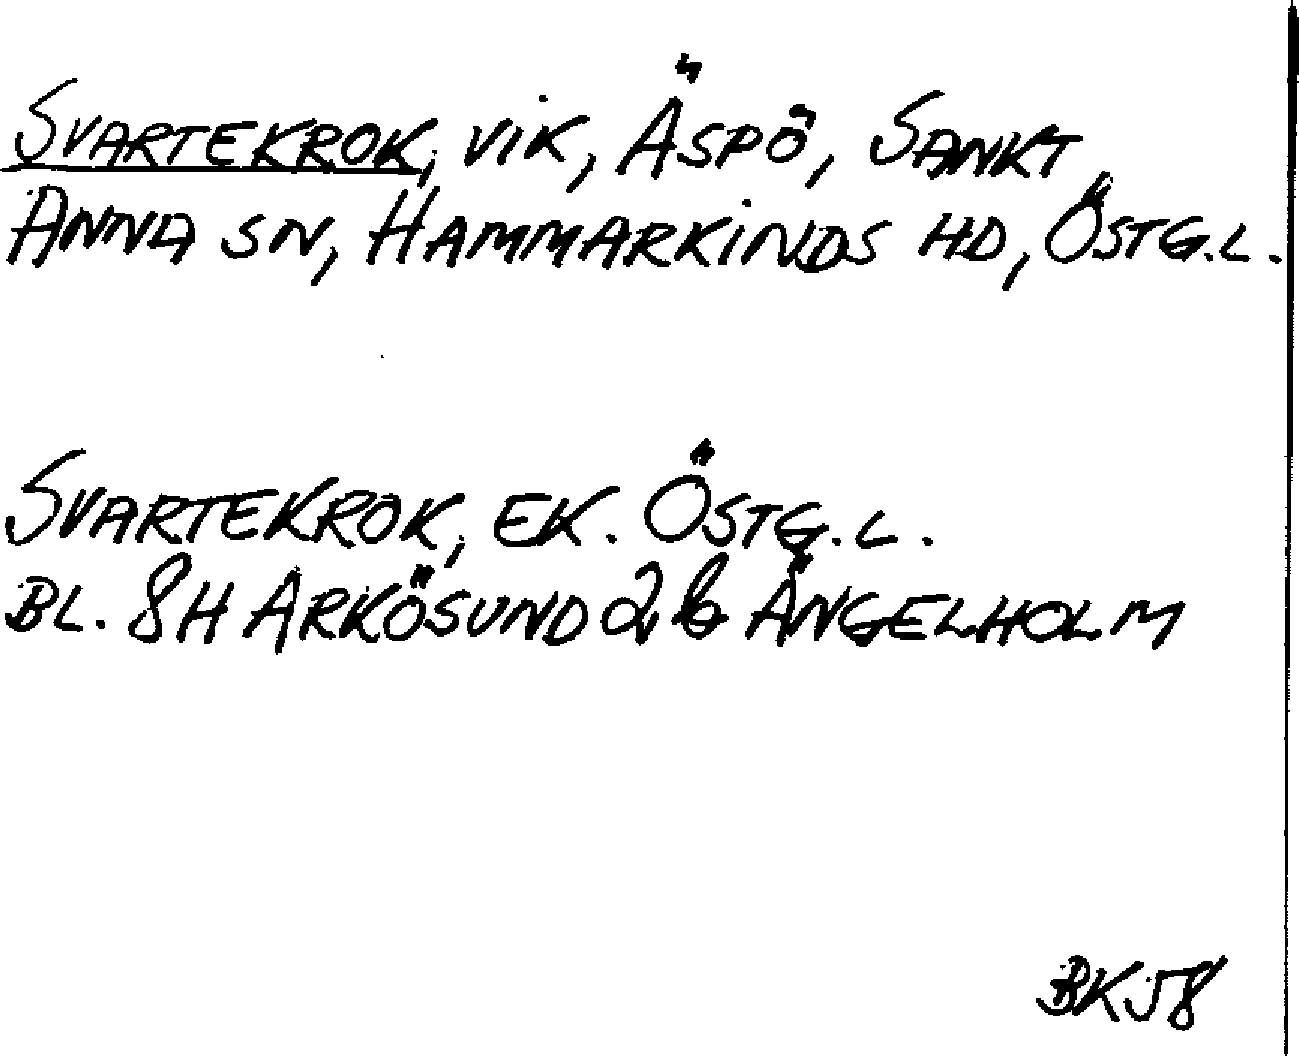 SVARTEKROK, VIK, ÄSPÖ, SANKT
ANNA SN, HAMMARKINDS HD, ÖSTG.L.
SVARTEKROK, EK. ÖSTG.L.
BL. 8H ARKÖSUND 2b ÄNGELHOLM
BK58